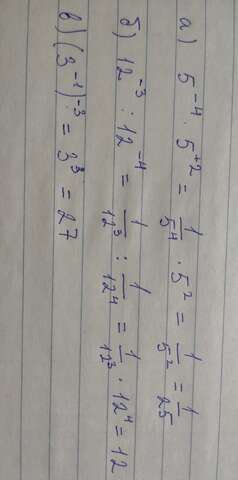 а) 5⁻⁴ · 5⁺² = 1/5⁴ · 5² = 1/5² = 1/25
б) 12⁻³ : 12⁻⁴ = 1/12³ : 1/12⁴ = 1/12³ · 12⁴ = 12
в) (3⁻¹)⁻³ = 3³ = 27